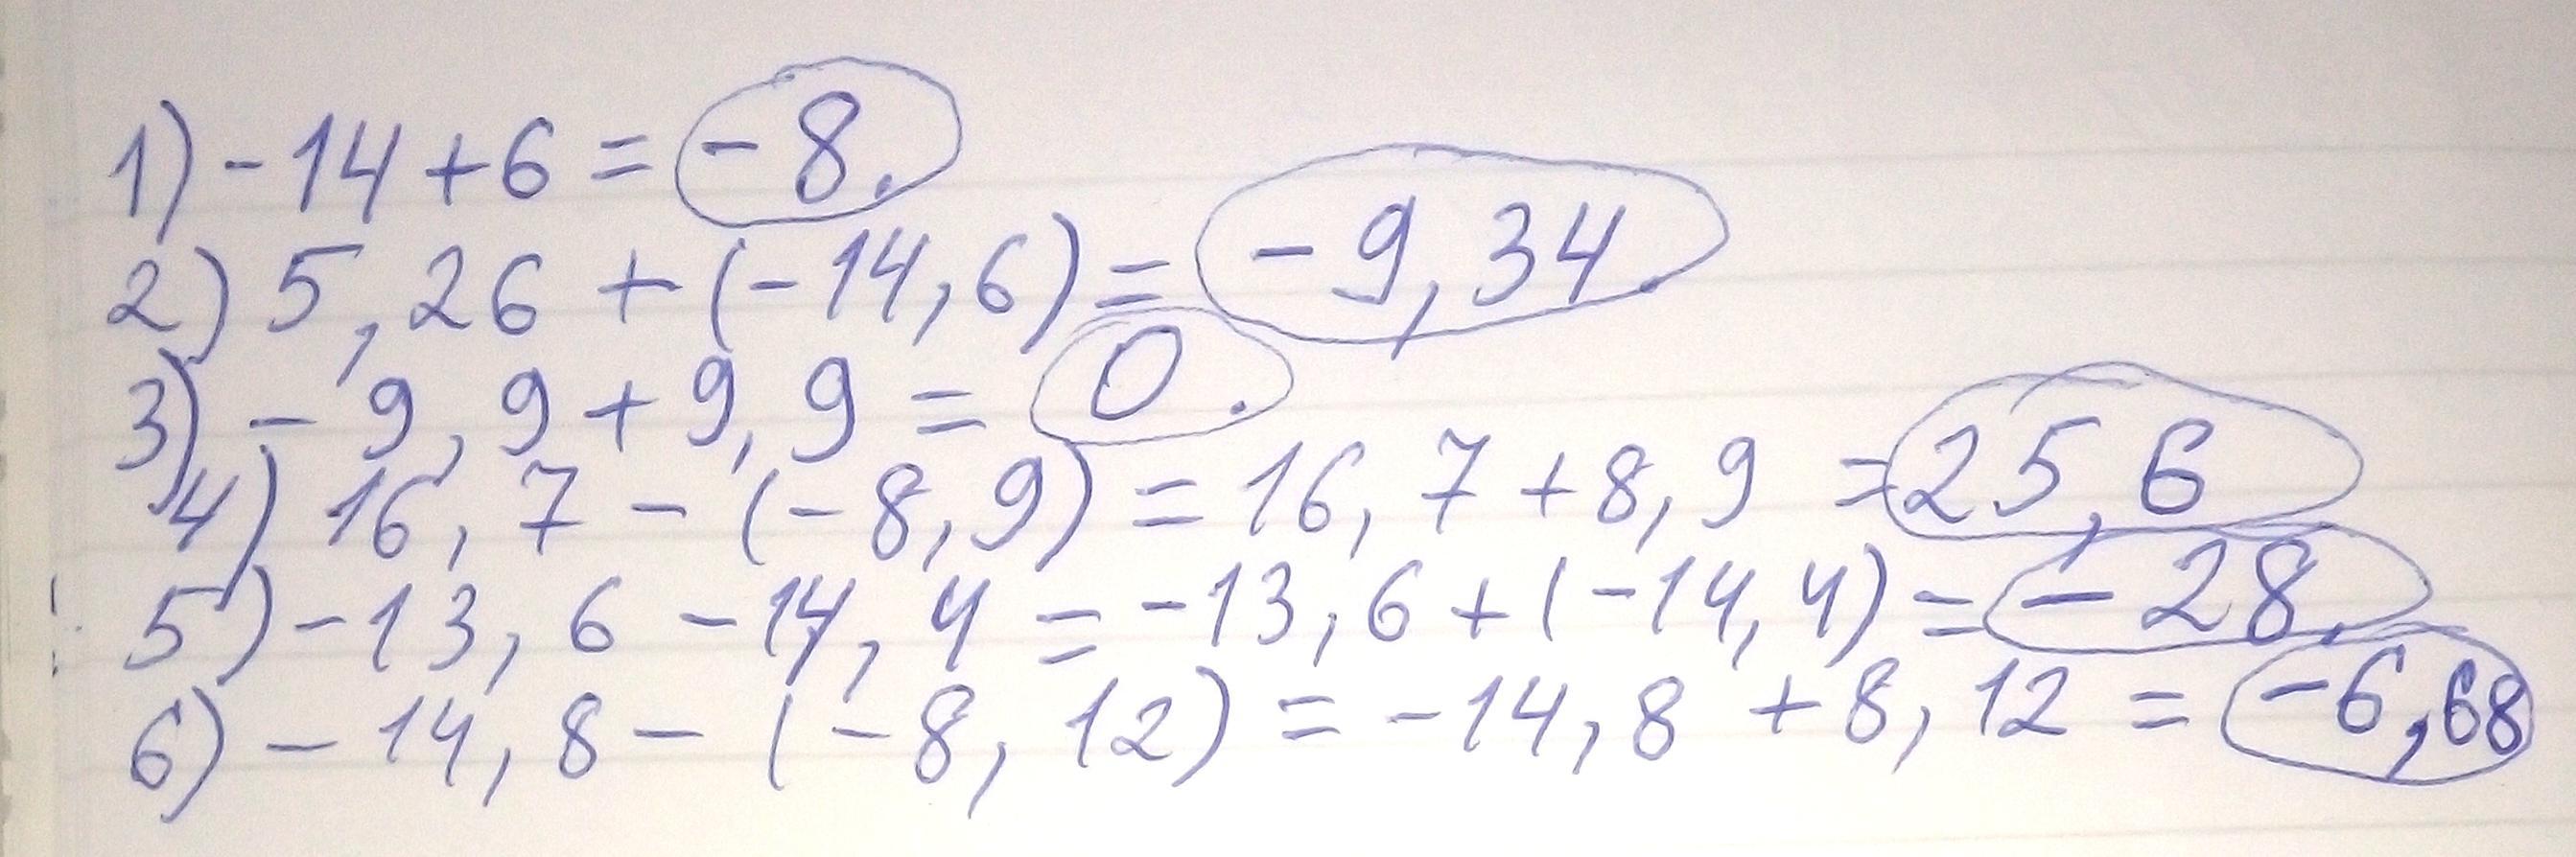 1) - 14 + 6 = - 8.
2) 5, 26 + (- 14, 6) = - 9, 34.
3) - 9, 9 + 9, 9 = 0.
4) 16, 7 - (- 8, 9) = 16, 7 + 8, 9 = 25, 6
5) - 13, 6 - 14, 4 = - 13, 6 + (- 14, 4) = - 28.
6) - 14, 8 - (- 8, 12) = - 14, 8 + 8, 12 = - 6, 68